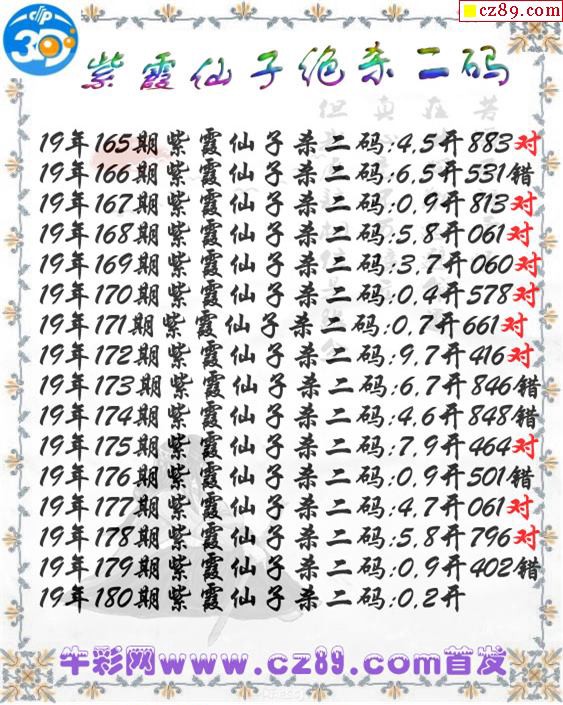 3D
cz89.com
紫霞仙子绝杀二码
但真在苦
19年165期紫霞仙子杀二码:4.5开883对
19年166期紫霞仙子杀二码:6.5开531错
19年167期紫霞仙子杀二码:0.9开813对
19年168期紫霞仙子杀二码:5.8开061对
19年169期紫霞仙子杀二码:3.7开060对
19年170期紫霞仙子杀二码:0.4开578对
19年171期紫霞仙子杀二码:0.7开661对
19年172期紫霞仙子杀二码:9.7开416对
19年173期紫霞仙子杀二码:6.7开846错
19年174期紫霞仙子杀二码:4.6开848错
19年175期紫霞仙子杀二码:7.9开464对
19年176期紫霞仙子杀二码:0.9开501错
19年177期紫霞仙子杀二码:4.7开061对
19年178期紫霞仙子杀二码:5.8开796对
19年179期紫霞仙子杀二码:0.9开402错
19年180期紫霞仙子杀二码:0.2开
牛彩网www.cz89.com首发